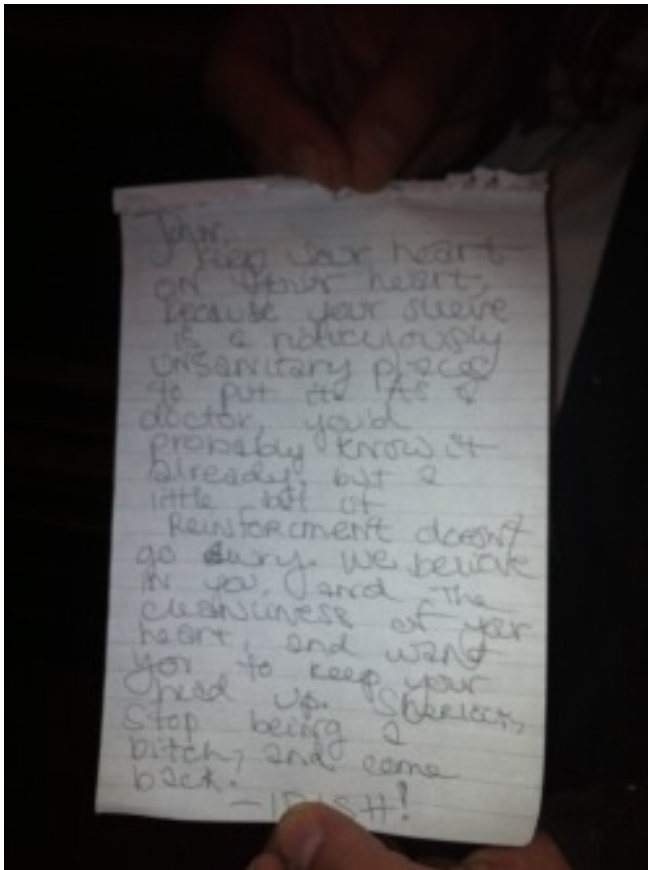 John,
Keep your heart
on your heart,
because your sleeve
is a ridiculously
unsanitary place
to put it. As a
doctor, you'd
probably know it
already, but a
little bit of
Reinforcment doesn't
go awry. We believe
in you, and the
cleanliness of your
heart, and want
you to keep your
head up. Sherlock,
stop being a
bitch, and come
back.
-I SH!